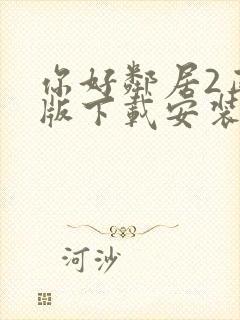 你好鄰居2
版下載安裝
河沙